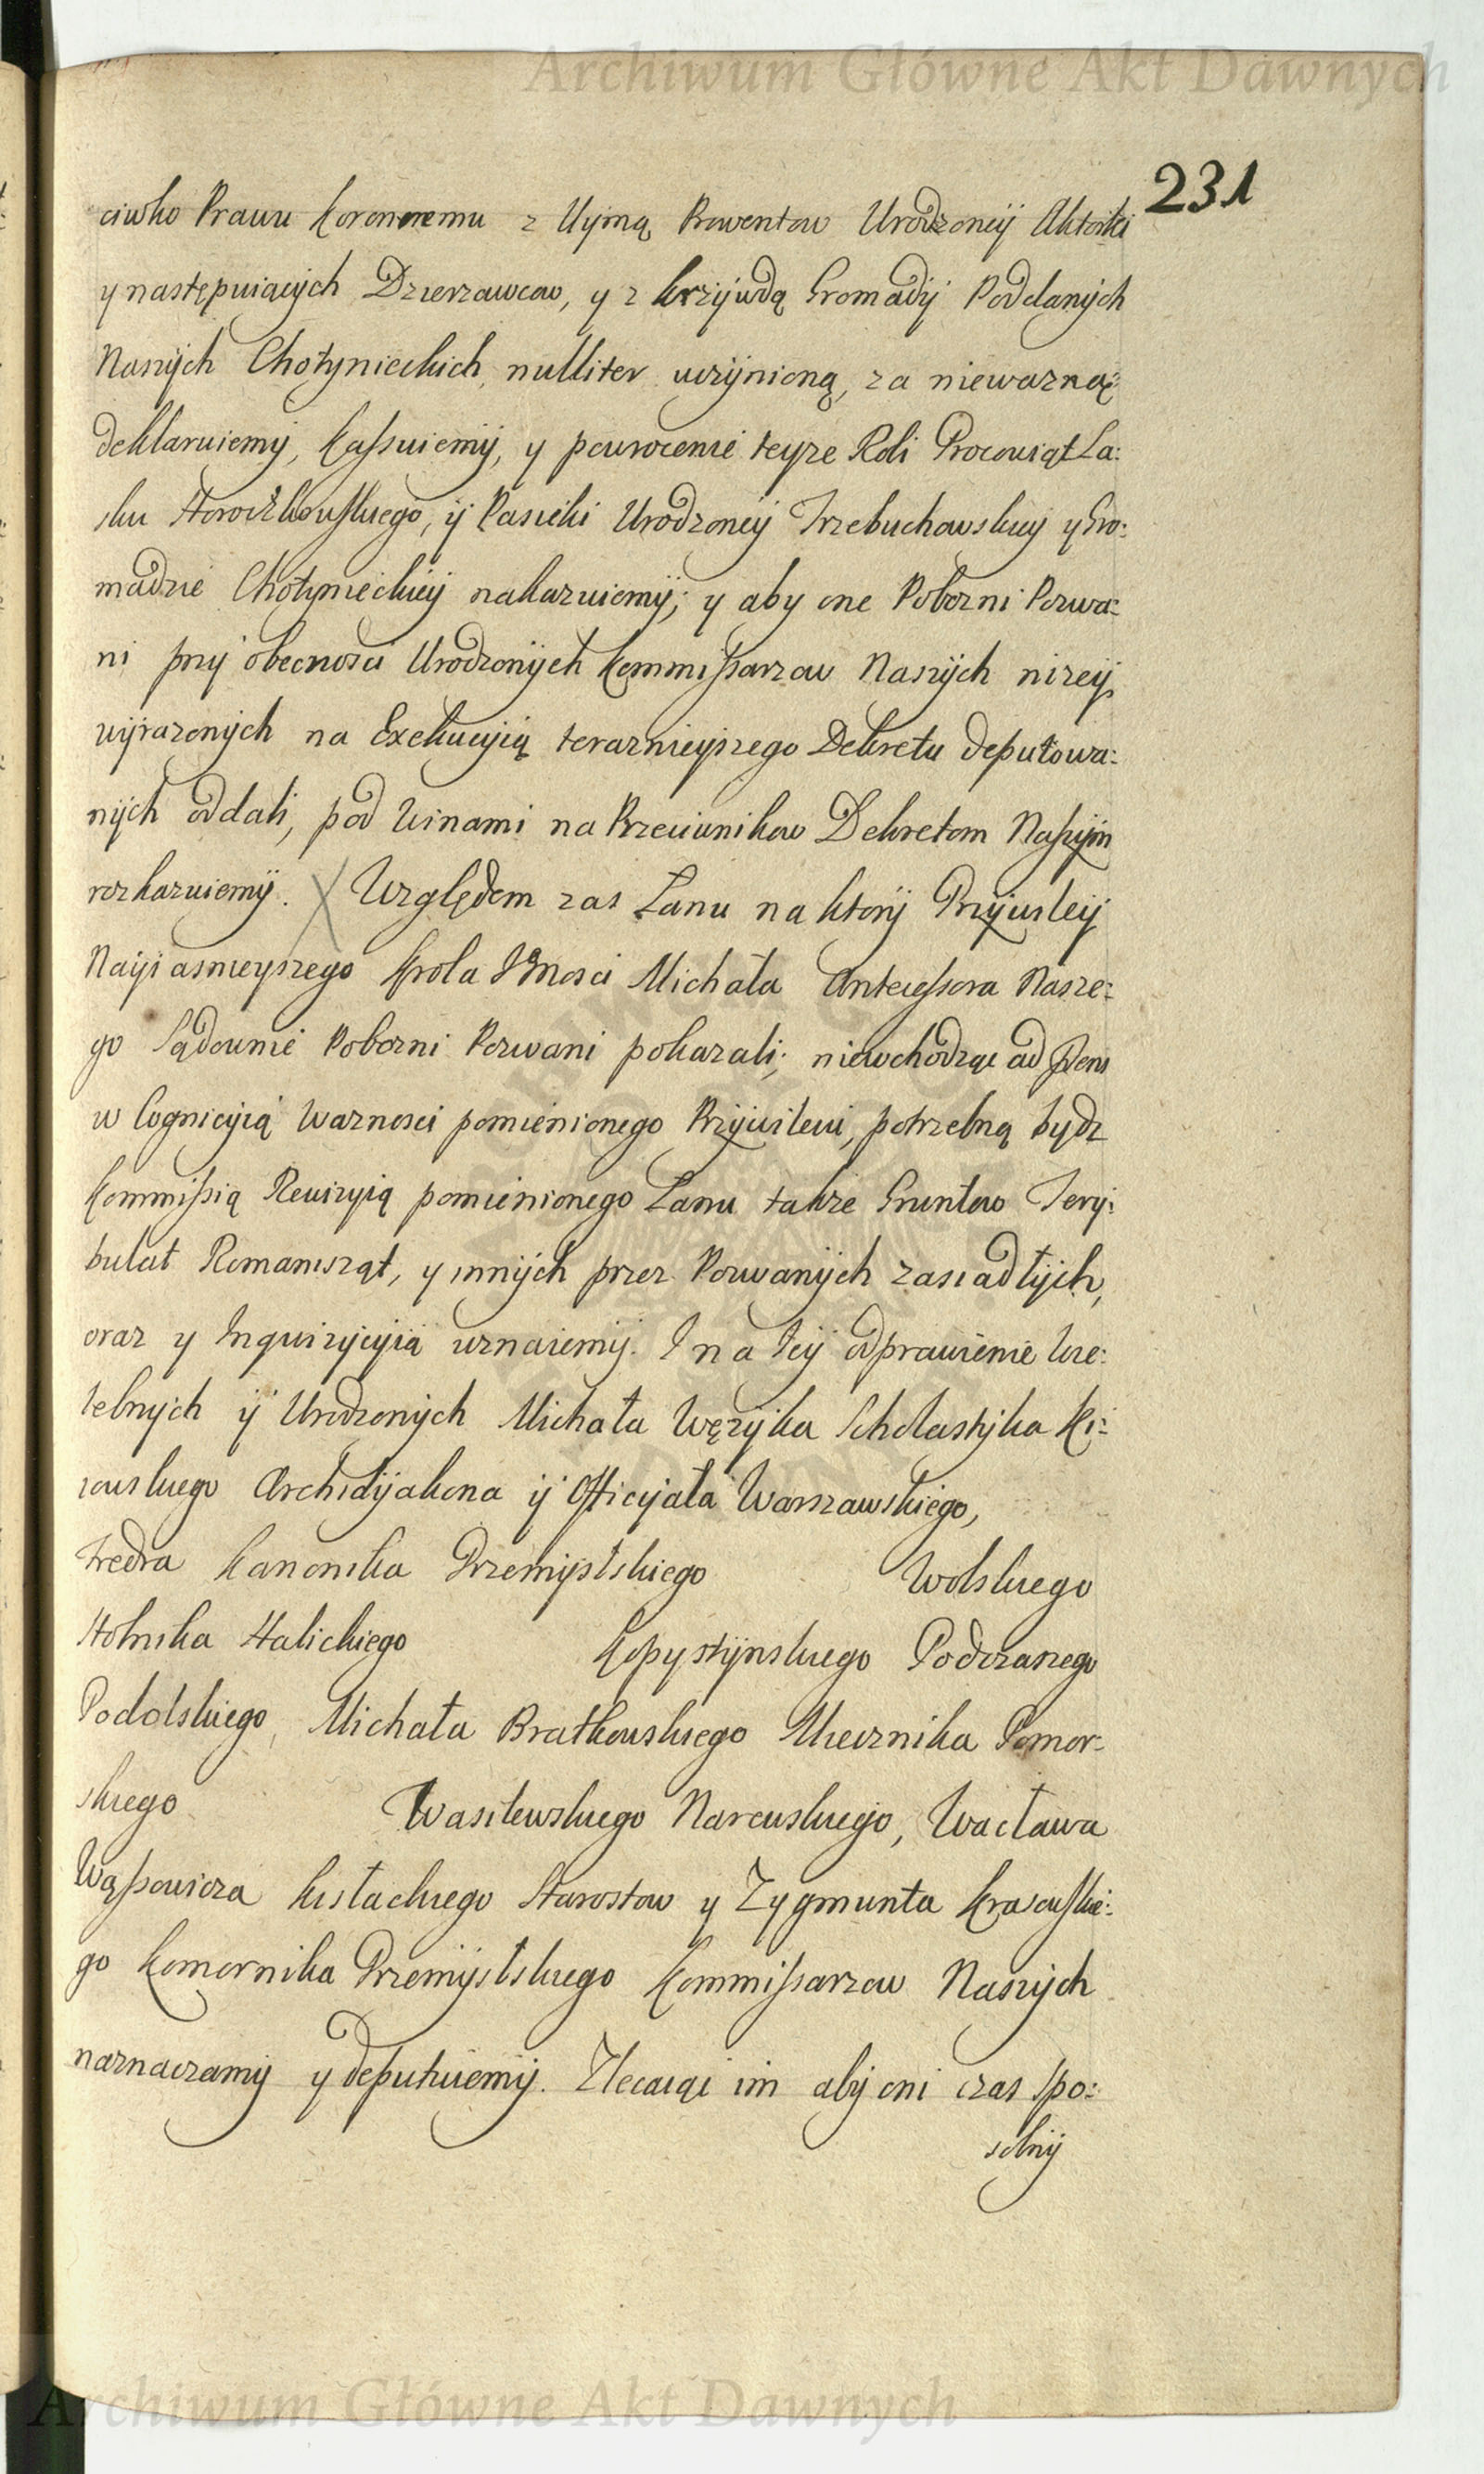 Archiwum Główne Akt Dawnych
231
ciwko Prawu Koronnemu z Uymą Prowentow Urodzoney Aktorki
y następuiących Dzierzawcow, y z krzywdą Gromady Poddanych
Naszych Chotynieckich, nulliter uczynioną, za niewazną
deklaruiemy, kassuiemy, y powrocenie teyze Roli Procowiąt La:
sku Horoszkowskiego, y Pasieki Urodzoney Trzebuchowskiey y Gro:
madzie Chotynieckiey nakazuiemy; y aby one Pobozni Pozwa:
ni przy obecnosci Urodzonych Kommissarzow Naszych nizey
wyrazonych na Exekucyią teraznieyszego Dekretu deputowa:
nych oddali, pod winami na Przeciwnikow Dekretom Naszym
rozkazuiemy. Względem zas Łanu na ktory Przywiley
Nayiasnieyszego Krola JMosci Michała Antecessora Nasze:
go Sądownie Pobozni Pozwani pokazali; niewchodząc ad Praens
w Cognicyią waznosci pomienionego Przywileiu, potrzebną bydz
Kommissią Rewizyią pomienionego Łanu takze Gruntow Jery:
bulat Romanisząt, y innych przez Pozwanych zasiadłych,
oraz y Inquizycyią uznaiemy. I na tey odprawienie Wie:
lebnych y Urodzonych Michała Węzyka Scholastyka Ki:
iowskiego Archidyakona y Officyała Warszawskiego,
Fredra Kanonika Przemyslskiego Wolskiego
Stolnika Halickiego Kopystynskiego Podczaszego
Podolskiego, Michała Bratkowskiego Miecznika Pomor:
skiego Wasilewskiego Narewskiego, Wacława
Wąssowicza Kistackiego Starostow y Zygmunta Krasuskie:
go Komornika Przemyslskiego Kommissarzow Naszych
naznaczamy y deputuiemy. Zlecaiąc im aby oni czas spo:
sobny
Archiwum Główne Akt Dawnych